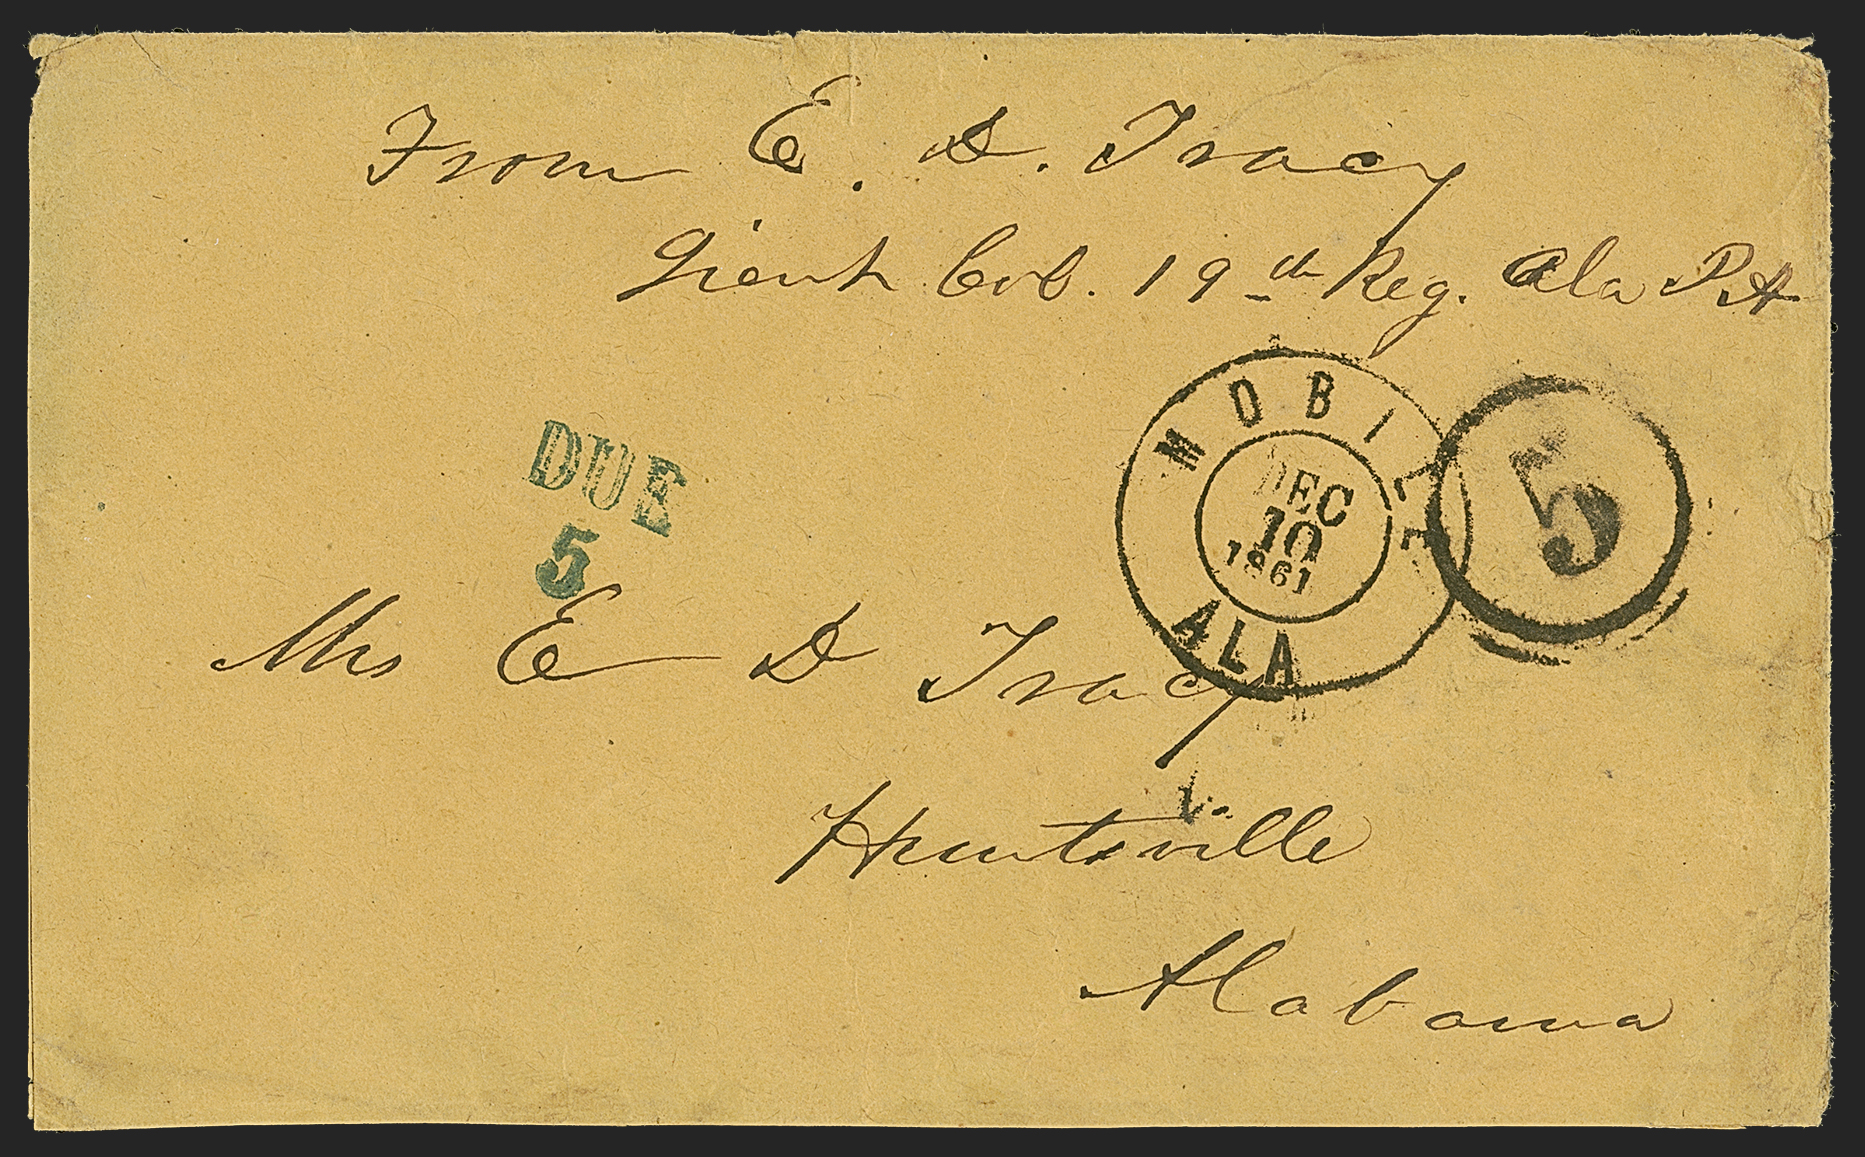 From E. D. Tracy
Lieut Col. 19th Reg. Ala P.A.
DUE
5
MOBILE
DEC
10
1861
ALA
5
Mrs E D Tracy
Huntsville
Alabama